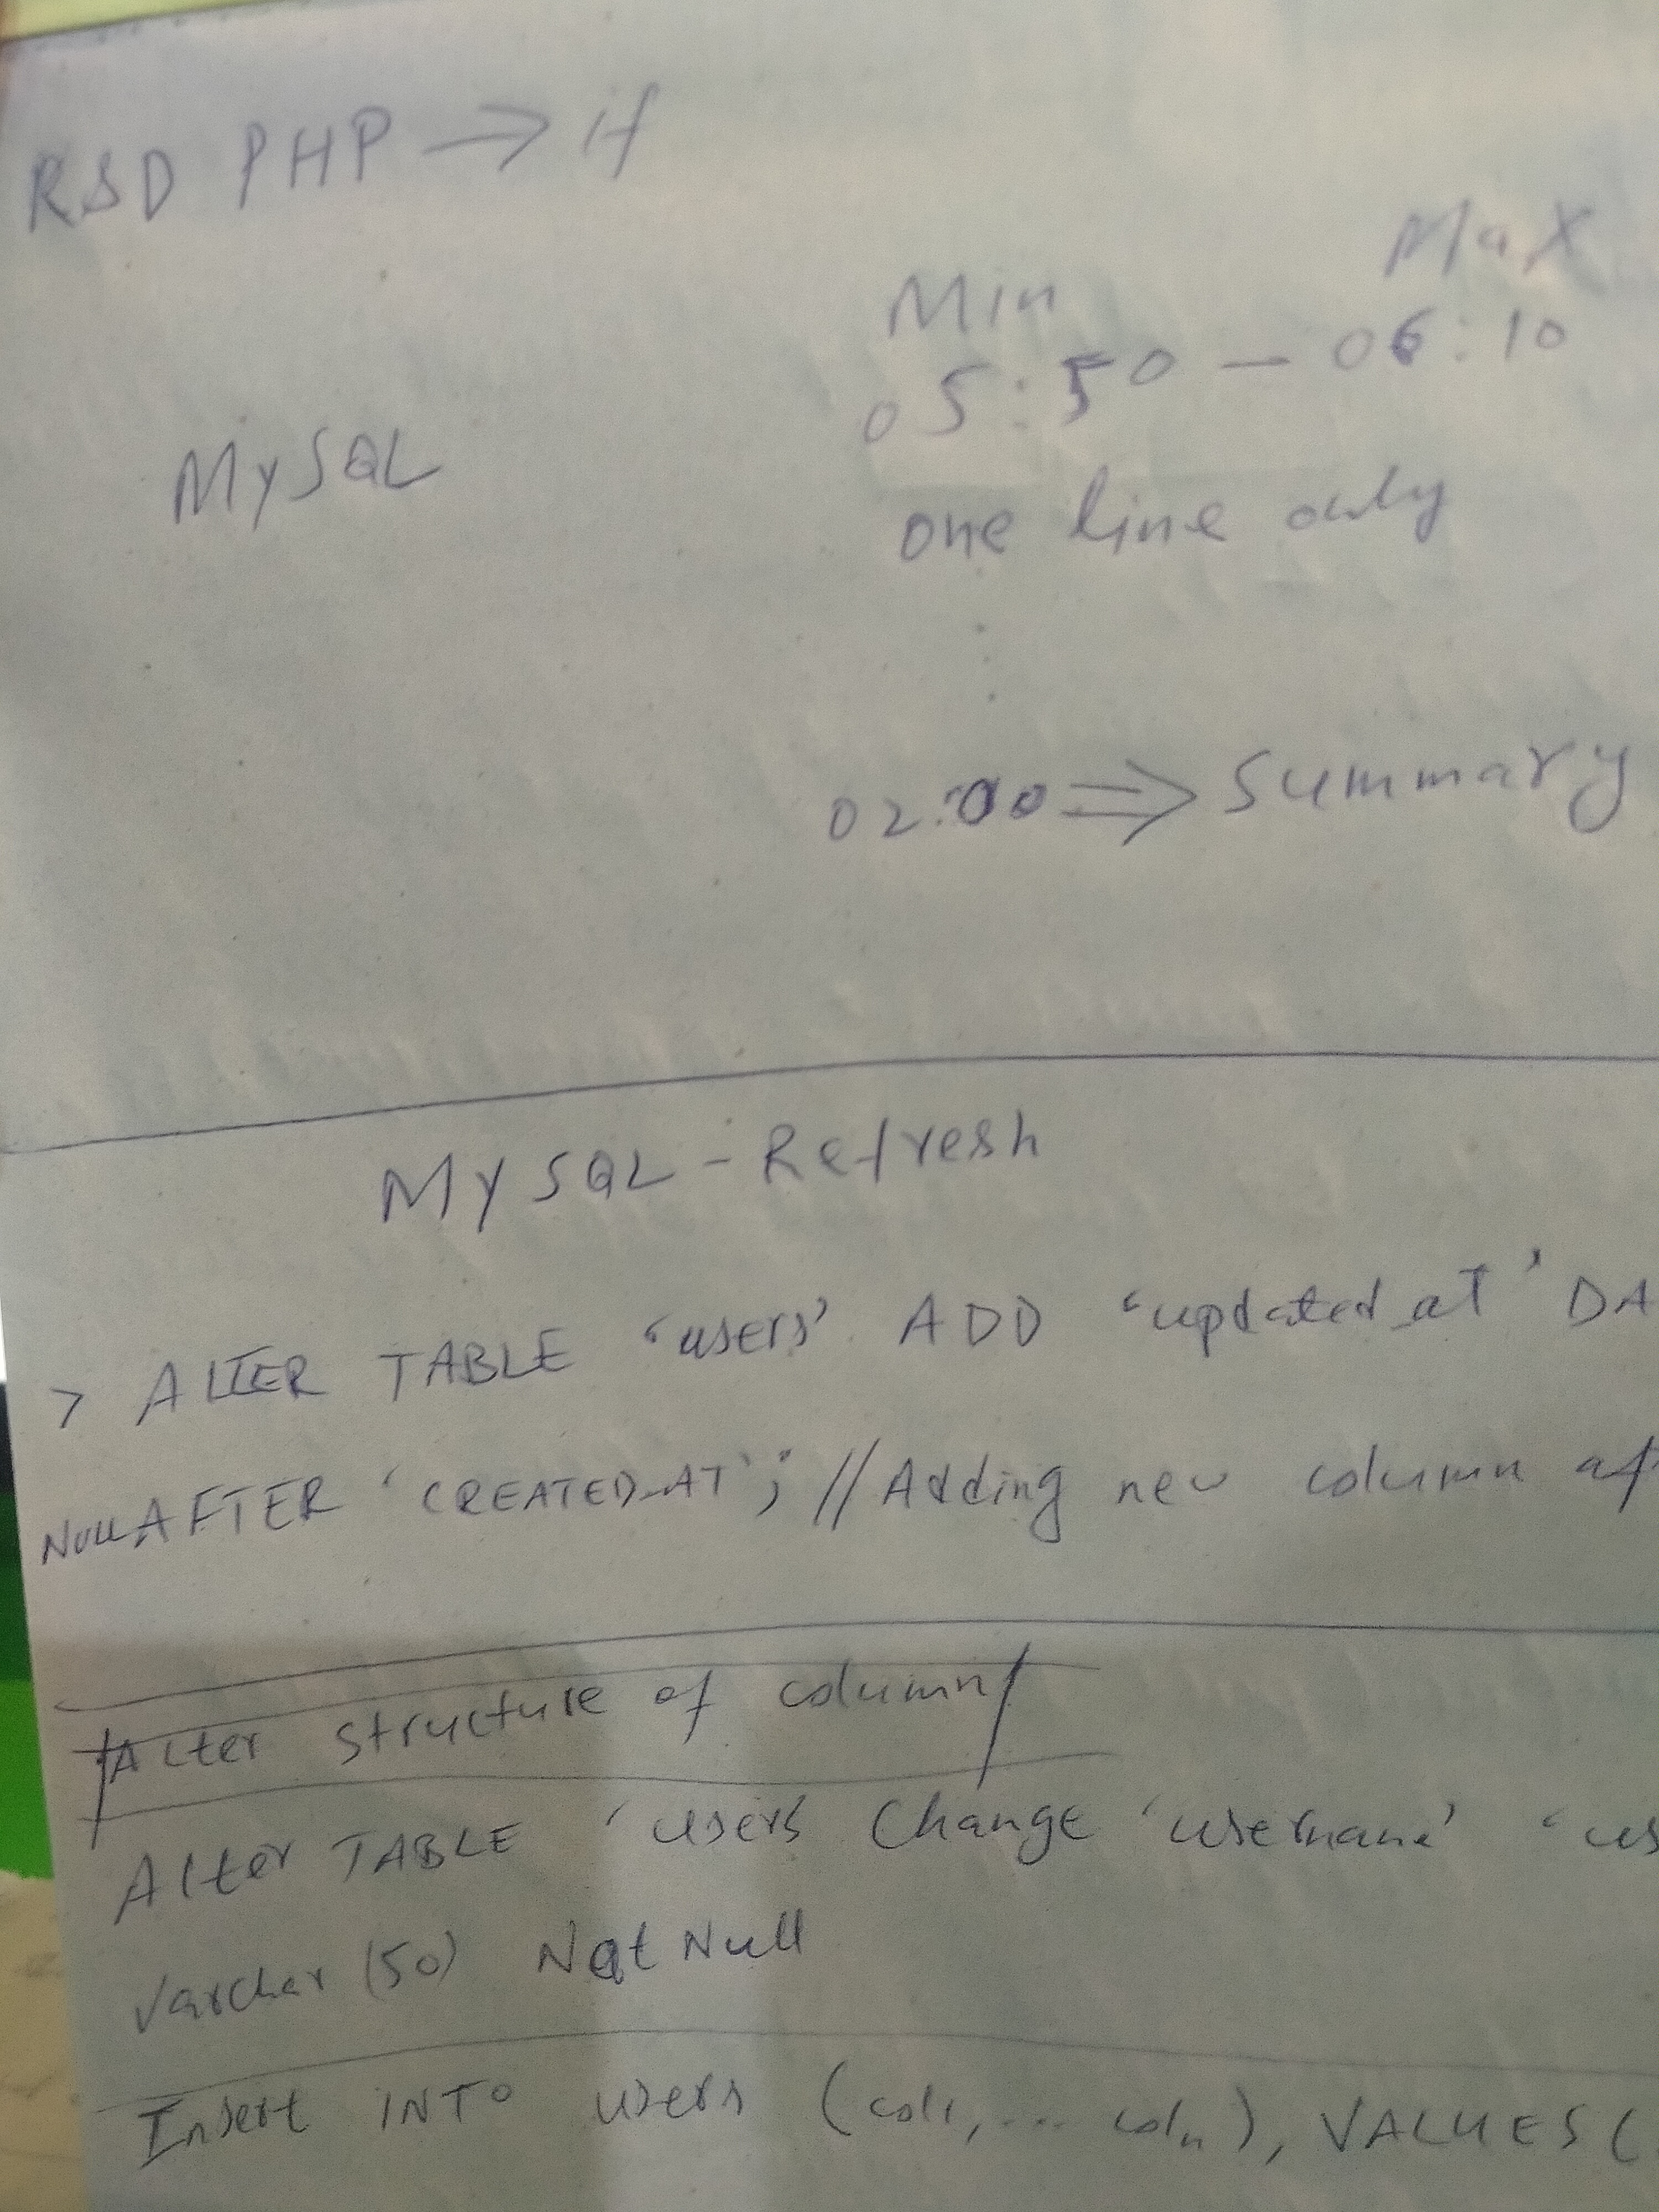 RSD PHP → if
Min MaX
05:50 — 06:10
MySQL
one line only
02:00 ⇒ Summary
MySQL - Refresh
> ALTER TABLE ‘users’ ADD ‘updated_at’ DA
Null AFTER ‘CREATED_AT’; // Adding new column af
Alter structure of column
Alter TABLE ‘users’ Change ‘username’ ‘us
Varchar (50) Not Null
Insert INTO users (col1, ... coln), VALUES (